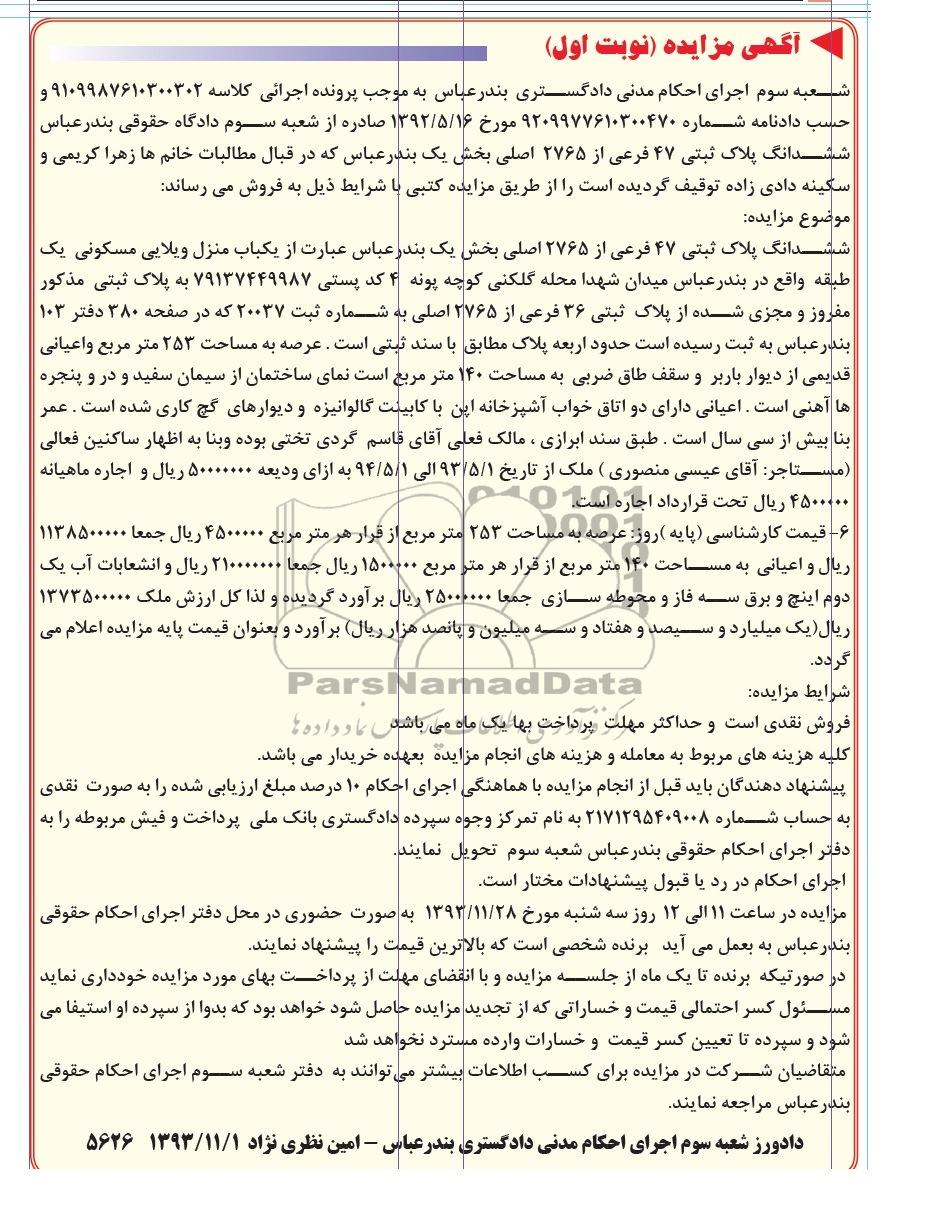 آگهی مزایده (نوبت اول)
شعبه سوم اجرای احکام مدنی دادگستری بندرعباس به موجب پرونده اجرائی کلاسه ۹۱۰۹۹۸۷۶۱۰۳۰۰۳۰۲ و
حسب دادنامه شماره ۹۲۰۹۹۷۷۶۱۰۳۰۰۴۷۰ مورخ ۱۳۹۲/۵/۱۶ صادره از شعبه سوم دادگاه حقوقی بندرعباس
ششدانگ پلاک ثبتی ۴۷ فرعی از ۲۷۶۵ اصلی بخش یک بندرعباس که در قبال مطالبات خانم ها زهرا کریمی و
سکینه دادی زاده توقیف گردیده است را از طریق مزایده کتبی با شرایط ذیل به فروش می رساند:
موضوع مزایده:
ششدانگ پلاک ثبتی ۴۷ فرعی از ۲۷۶۵ اصلی بخش یک بندرعباس عبارت از یکباب منزل ویلایی مسکونی یک
طبقه واقع در بندرعباس میدان شهدا محله گلکنی کوچه پونه ۴ کد پستی ۷۹۱۳۷۴۴۹۹۸۷ به پلاک ثبتی مذکور
مفروز و مجزی شده از پلاک ثبتی ۳۶ فرعی از ۲۷۶۵ اصلی به شماره ثبت ۲۰۰۳۷ که در صفحه ۳۸۰ دفتر ۱۰۳
بندرعباس به ثبت رسیده است حدود اربعه پلاک مطابق با سند ثبتی است . عرصه به مساحت ۲۵۳ متر مربع واعیانی
قدیمی از دیوار باربر و سقف طاق ضربی به مساحت ۱۴۰ متر مربع است نمای ساختمان از سیمان سفید و در و پنجره
ها آهنی است . اعیانی دارای دو اتاق خواب آشپزخانه اپن با کابینت گالوانیزه و دیوارهای گچ کاری شده است . عمر
بنا بیش از سی سال است . طبق سند ابرازی ، مالک فعلی آقای قاسم گردی تختی بوده وبنا به اظهار ساکنین فعالی
(مستاجر: آقای عیسی منصوری ) ملک از تاریخ ۹۳/۵/۱ الی ۹۴/۵/۱ به ازای ودیعه ۵۰۰۰۰۰۰۰ ریال و اجاره ماهیانه
۴۵۰۰۰۰۰ ریال تحت قرارداد اجاره است.
۶- قیمت کارشناسی (پایه )روز: عرصه به مساحت ۲۵۳ متر مربع از قرار هر متر مربع ۴۵۰۰۰۰۰ ریال جمعا ۱۱۳۸۵۰۰۰۰۰
ریال و اعیانی به مساحت ۱۴۰ متر مربع از قرار هر متر مربع ۱۵۰۰۰۰۰ ریال جمعا ۲۱۰۰۰۰۰۰۰ ریال و انشعابات آب یک
دوم اینچ و برق سه فاز و محوطه سازی جمعا ۲۵۰۰۰۰۰۰ ریال برآورد گردیده و لذا کل ارزش ملک ۱۳۷۳۵۰۰۰۰۰
ریال(یک میلیارد و سیصد و هفتاد و سه میلیون و پانصد هزار ریال) برآورد و بعنوان قیمت پایه مزایده اعلام می
گردد.
شرایط مزایده:
فروش نقدی است و حداکثر مهلت پرداخت بها یک ماه می باشد
کلیه هزینه های مربوط به معامله و هزینه های انجام مزایده بعهده خریدار می باشد.
پیشنهاد دهندگان باید قبل از انجام مزایده با هماهنگی اجرای احکام ۱۰ درصد مبلغ ارزیابی شده را به صورت نقدی
به حساب شماره ۲۱۷۱۲۹۵۴۰۹۰۰۸ به نام تمرکز وجوه سپرده دادگستری بانک ملی پرداخت و فیش مربوطه را به
دفتر اجرای احکام حقوقی بندرعباس شعبه سوم تحویل نمایند.
اجرای احکام در رد یا قبول پیشنهادات مختار است.
مزایده در ساعت ۱۱ الی ۱۲ روز سه شنبه مورخ ۱۳۹۳/۱۱/۲۸ به صورت حضوری در محل دفتر اجرای احکام حقوقی
بندرعباس به بعمل می آید برنده شخصی است که بالاترین قیمت را پیشنهاد نمایند.
در صورتیکه برنده تا یک ماه از جلسه مزایده و با انقضای مهلت از پرداخت بهای مورد مزایده خودداری نماید
مسئول کسر احتمالی قیمت و خساراتی که از تجدید مزایده حاصل شود خواهد بود که بدوا از سپرده او استیفا می
شود و سپرده تا تعیین کسر قیمت و خسارات وارده مسترد نخواهد شد
متقاضیان شرکت در مزایده برای کسب اطلاعات بیشتر می‌توانند به دفتر شعبه سوم اجرای احکام حقوقی
بندرعباس مراجعه نمایند.
دادورز شعبه سوم اجرای احکام مدنی دادگستری بندرعباس – امین نظری نژاد ۱۳۹۳/۱۱/۱ ۵۶۲۶
ParsNamadData